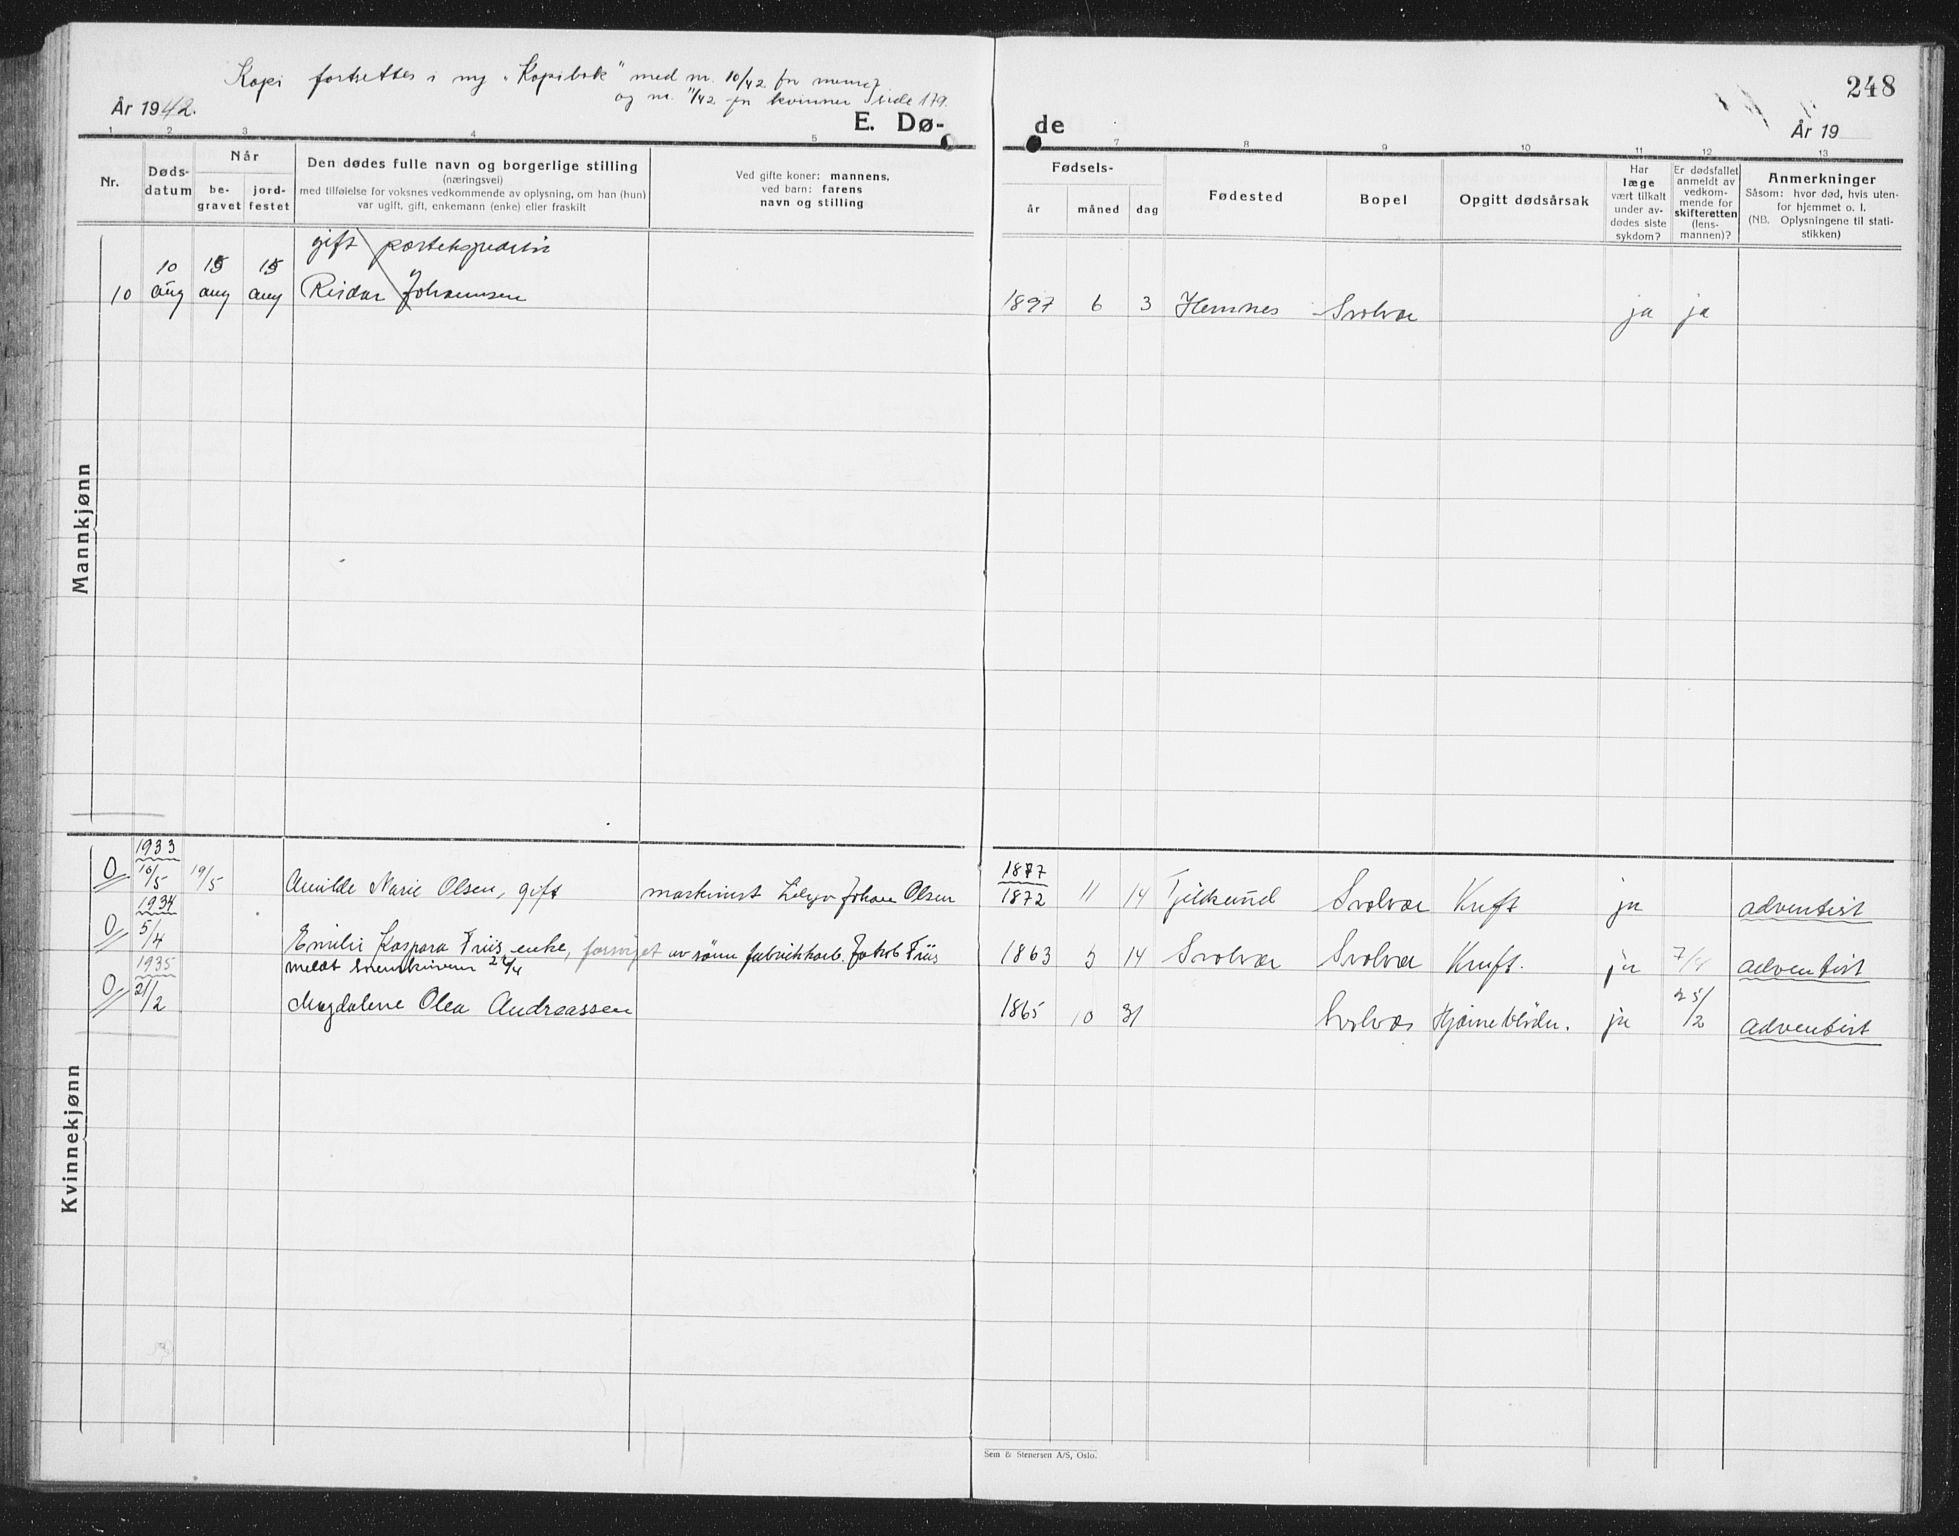 248
Kopi fortsettes i ny "Kopibok" med nr. 10/42 for menn
og nr. 11/42 for kvinner side 179.
År 1942.
E. Dø-
de
År 19
1 2 3 4 5 7 8 9 10 11 12 13
Nr.
Døds-
datum
Når
be-
gravet
jord-
festet
Den dødes fulle navn og borgerlige stilling
(næringsvei)
med tilføielse for voksnes vedkommende av oplysning, om han (hun)
var ugift, gift, enkemann (enke) eller fraskilt
Ved gifte koner: mannens,
ved barn: farens
navn og stilling
Fødsels-
år måned dag
Fødested
Bopel
Opgitt dødsårsak
Har
læge
vært tilkalt
under av-
dødes siste
sykdom?
Er dødsfallet
anmeldt av
vedkom-
mende for
skifteretten
(lens-
mannen)?
Anmerkninger
Såsom: hvor død, hvis uten-
for hjemmet o. l.
(NB. Oplysningene til stati-
stikken)
Mannkjønn
gift
10 15 15
10 aug aug aug Reidar Johannsen 1897 6 3 Hemnes Svolvær ja ja
Kvinnekjønn
1933 1877
0 16/5 19/5 Amilde Marie Olsen, gift maskinist Johan Olsen 1872 11 14 Tjeldsund Svolvær Kreft ja adventist
1934
0 5/4 Emilie Kaspara Friis enke, forsørget av sønn fabrikkarb. Jakob Friis 1863 5 14 Svolvær Svolvær Kreft. ja 7/4 adventist
1935
0 21/2 Magdalene Olea Andreassen 1865 10 31 Svolvær Hjerneblødn. ja 25/2 adventist
Sem & Stenersen A/S, Oslo.